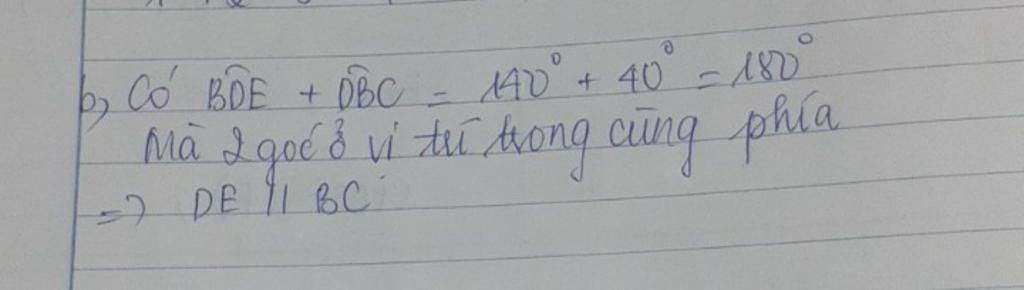 b, Có BDÊ + DB̂C = 140° + 40° = 180°
Mà 2 góc ở vị trí trong cùng phía
=> DE // BC